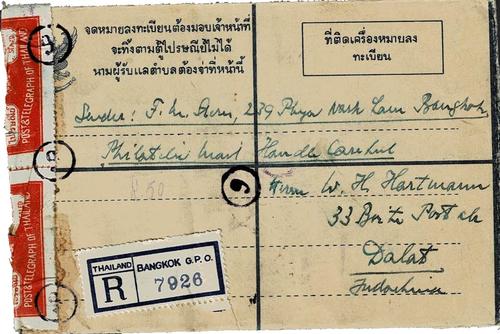 จดหมายลงทะเบียนต้องมอบเจ้าหน้าที่
จะทิ้งตามตู้ไปรษณีย์ไม่ได้
นามผู้รับแลตำบลต้องจ่าที่หน้านี้
ที่ติดเครื่องหมายลง
ทะเบียน
Sender: F. M. Stern, 239 Phya Bangkok
Philatelic Mail Handle Careful
8.50
Herrn W. H. Hartmann
33 Boite Postale
Dalat
Indochina
THAILAND
R
BANGKOK G.P.O.
7926
POST & TELEGRAPH OF THAILAND
POST & TELEGRAPH OF THAILAND
9
9
9
9